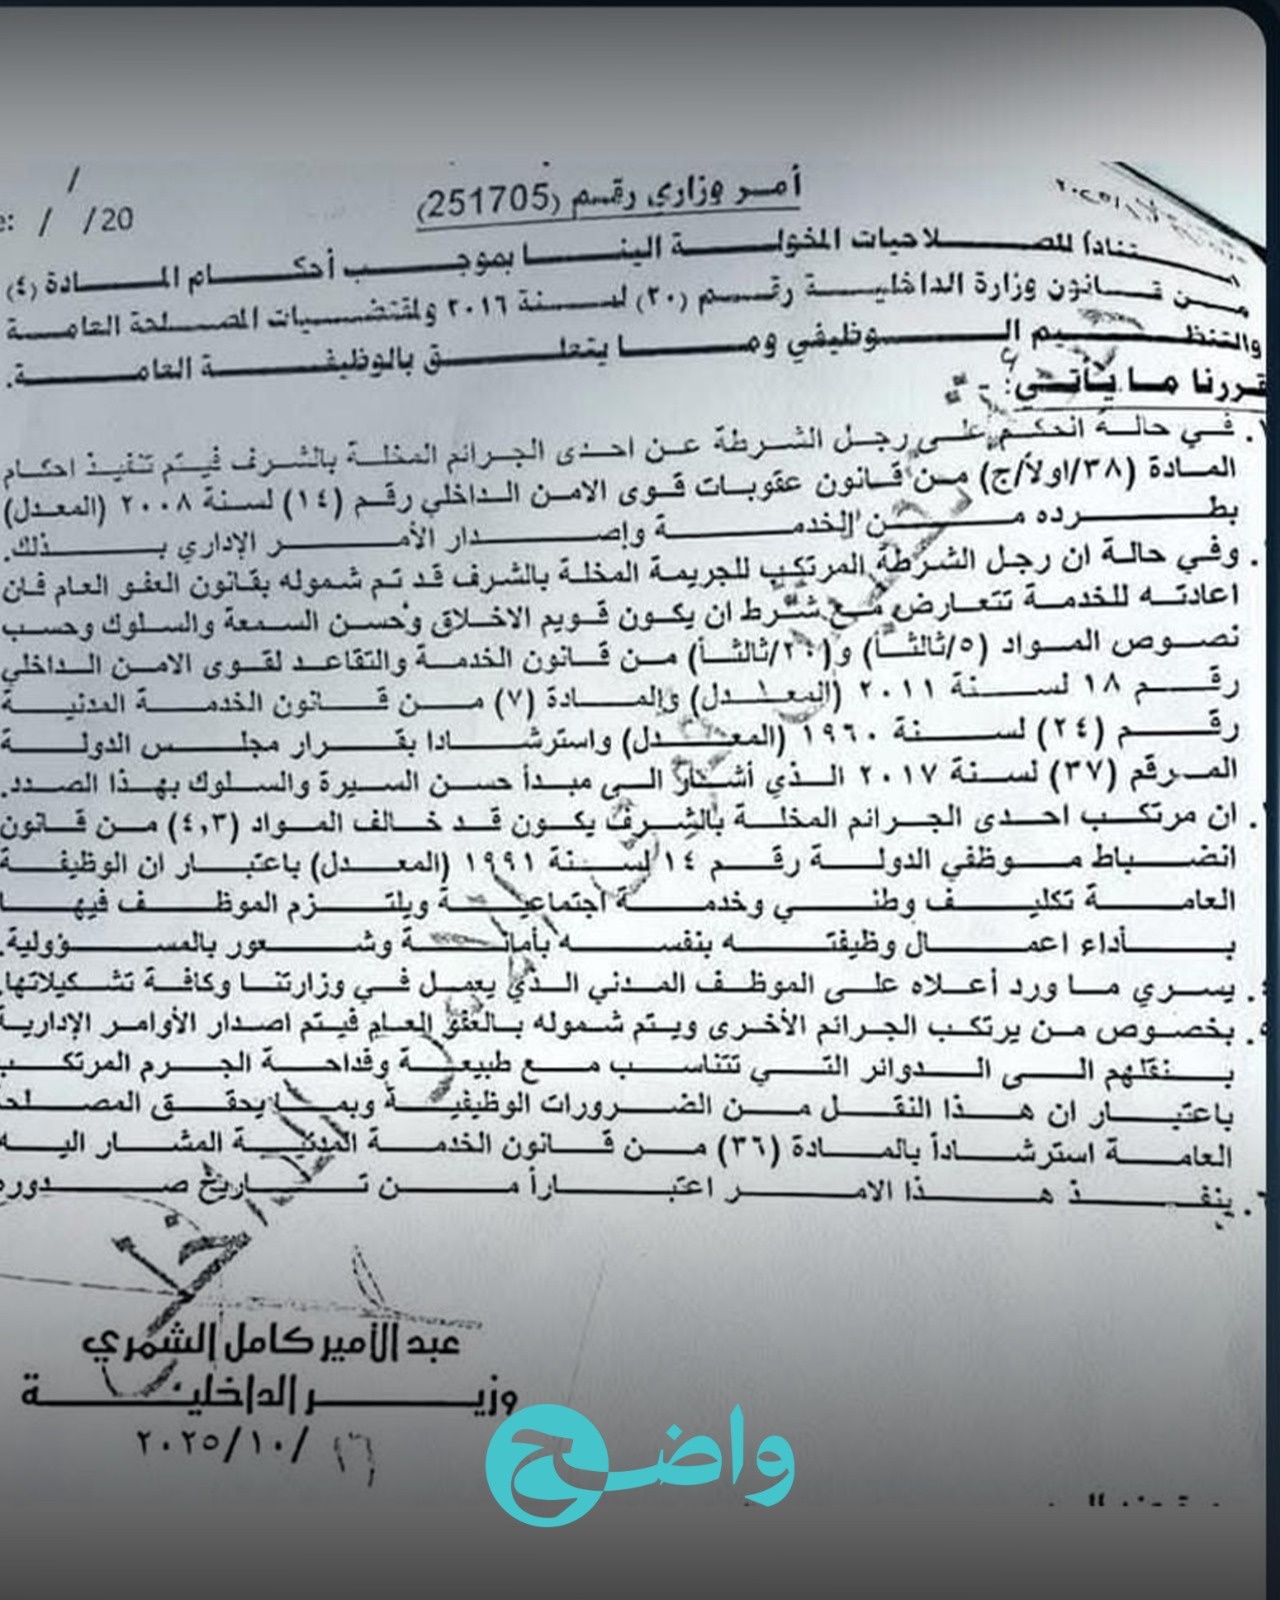 أمر وزاري رقم (251705)
/
/ /20
ستناداً للصلاحيات المخولة الينا بموجب أحكام المادة (٤)
من قانون وزارة الداخلية رقم (٢٠) لسنة ٢٠١٦ ولمقتضيات المصلحة العامة
والتنظيم الوظيفي وما يتعلق بالوظيفة العامة.
قررنا ما يأتي:-
. في حالة الحكم على رجل الشرطة عن احدى الجرائم المخلة بالشرف فيتم تنفيذ احكام
المادة (٣٨/اولاً/ج) من قانون عقوبات قوى الامن الداخلي رقم (١٤) لسنة ٢٠٠٨ (المعدل)
بطرده من الخدمة وإصدار الأمر الإداري بذلك.
. وفي حالة ان رجل الشرطة المرتكب للجريمة المخلة بالشرف قد تم شموله بقانون العفو العام فإن
اعادته للخدمة تتعارض مع شرط ان يكون قويم الاخلاق وحسن السمعة والسلوك وحسب
نصوص المواد (٥/ثالثاً) و(٢٠/ثالثاً) من قانون الخدمة والتقاعد لقوى الامن الداخلي
رقم ١٨ لسنة ٢٠١١ (المعدل) والمادة (٧) من قانون الخدمة المدنية
رقم (٢٤) لسنة ١٩٦٠ (المعدل) واسترشادا بقرار مجلس الدولة
المرقم (٣٧) لسنة ٢٠١٧ الذي أشار الى مبدأ حسن السيرة والسلوك بهذا الصدد.
. ان مرتكب احدى الجرائم المخلة بالشرف يكون قد خالف المواد (٤,٣) من قانون
انضباط موظفي الدولة رقم ١٤ لسنة ١٩٩١ (المعدل) باعتبار ان الوظيفة
العامة تكليف وطني وخدمة اجتماعية ويلتزم الموظف فيها
بأداء اعمال وظيفته بنفسه بأمانة وشعور بالمسؤولية.
. يسري ما ورد أعلاه على الموظف المدني الذي يعمل في وزارتنا وكافة تشكيلاتها.
. بخصوص من يرتكب الجرائم الأخرى ويتم شموله بالعفو العام فيتم اصدار الأوامر الإدارية
بنقلهم الى الدوائر التي تتناسب مع طبيعة وفداحة الجرم المرتكب
باعتبار ان هذا النقل من الضرورات الوظيفية وبما يحقق المصلحة
العامة استرشاداً بالمادة (٣٦) من قانون الخدمة المدنية المشار اليه
. ينفذ هذا الامر اعتباراً من تاريخ صدوره
عبد الأمير كامل الشمري
وزير الداخلية
٢٠٢٥/١٠/
واضح